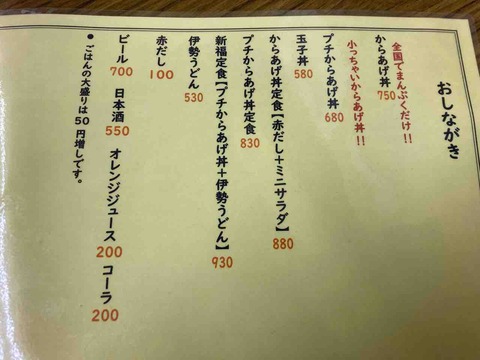 おしながき
全国でまんぷくだけ!!
からあげ丼 750
小っちゃいからあげ丼!!
プチからあげ丼 680
玉子丼 580
からあげ丼定食【赤だし+ミニサラダ】 880
プチからあげ丼定食 830
新福定食【プチからあげ丼+伊勢うどん】 930
伊勢うどん 530
赤だし 100
ビール 700 日本酒 550 オレンジジュース 200 コーラ 200
●ごはんの大盛りは50円増しです。